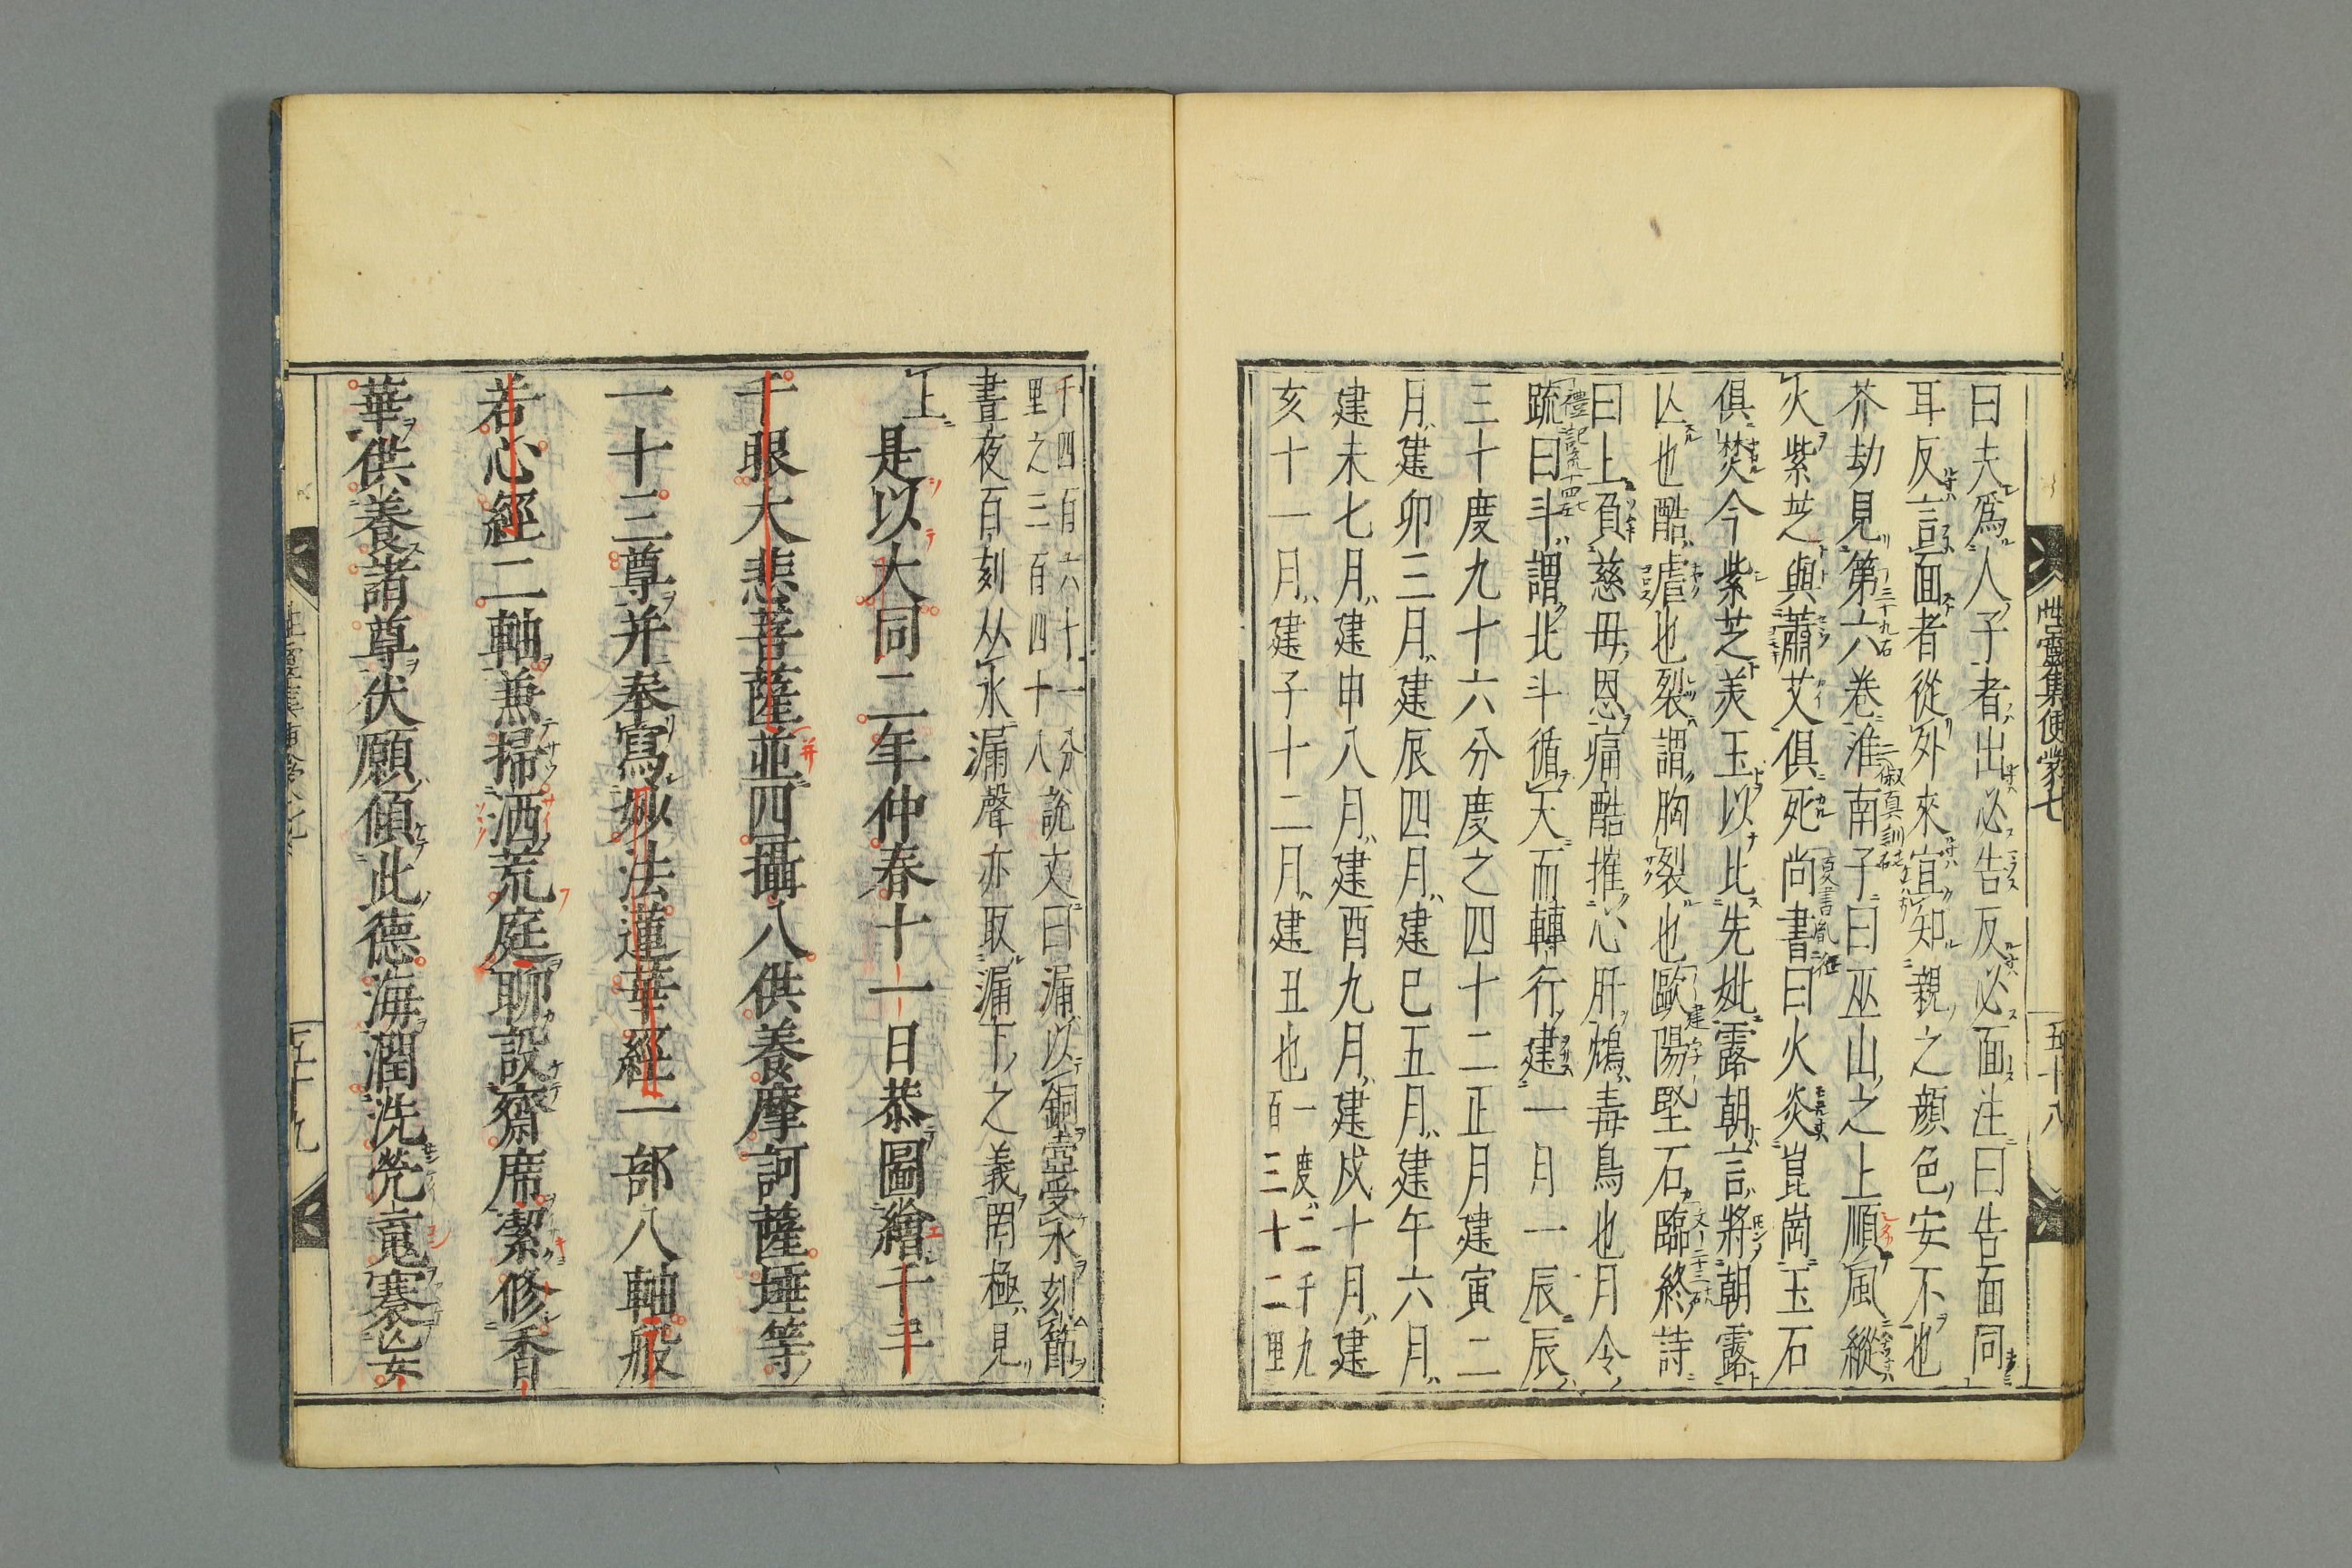 性靈集便蒙七
五十八
曰夫爲人子者出必告反必面注曰告面同
耳反言面者從外來宜知親之顔色安不也
芥劫見第六卷淮南子曰巫山之上順風縱
火紫芝與蕭艾俱死尚書曰火炎崑崗玉石
俱焚今紫芝美玉以比先妣露朝言將朝露
亾也酷虐也裂謂胸裂也歐陽堅石臨終詩
曰上負慈母恩痛酷摧心肝鴆毒鳥也月令
疏曰斗謂北斗循天而轉行建一月一辰辰
三十度九十六分度之四十二正月建寅二
月建卯三月建辰四月建巳五月建午六月
建未七月建申八月建酉九月建戌十月建
亥十一月建子十二月建丑也一度二千九
百三十二里
千四百六十一分
里之三百四十八
說文曰漏以銅壺受水刻節
晝夜百刻从水漏聲亦取漏下之義罔極見
上
是以大同二年仲春十一日恭圖繪千手
千眼大悲菩薩並四攝八供養摩訶薩埵等
一十三尊并奉寫妙法蓮華經一部八軸般
若心經二軸兼掃洒荒庭聊設齋席潔修香
華供養諸尊伏願傾此德海潤洗煢䰟褰亾妄
五十九